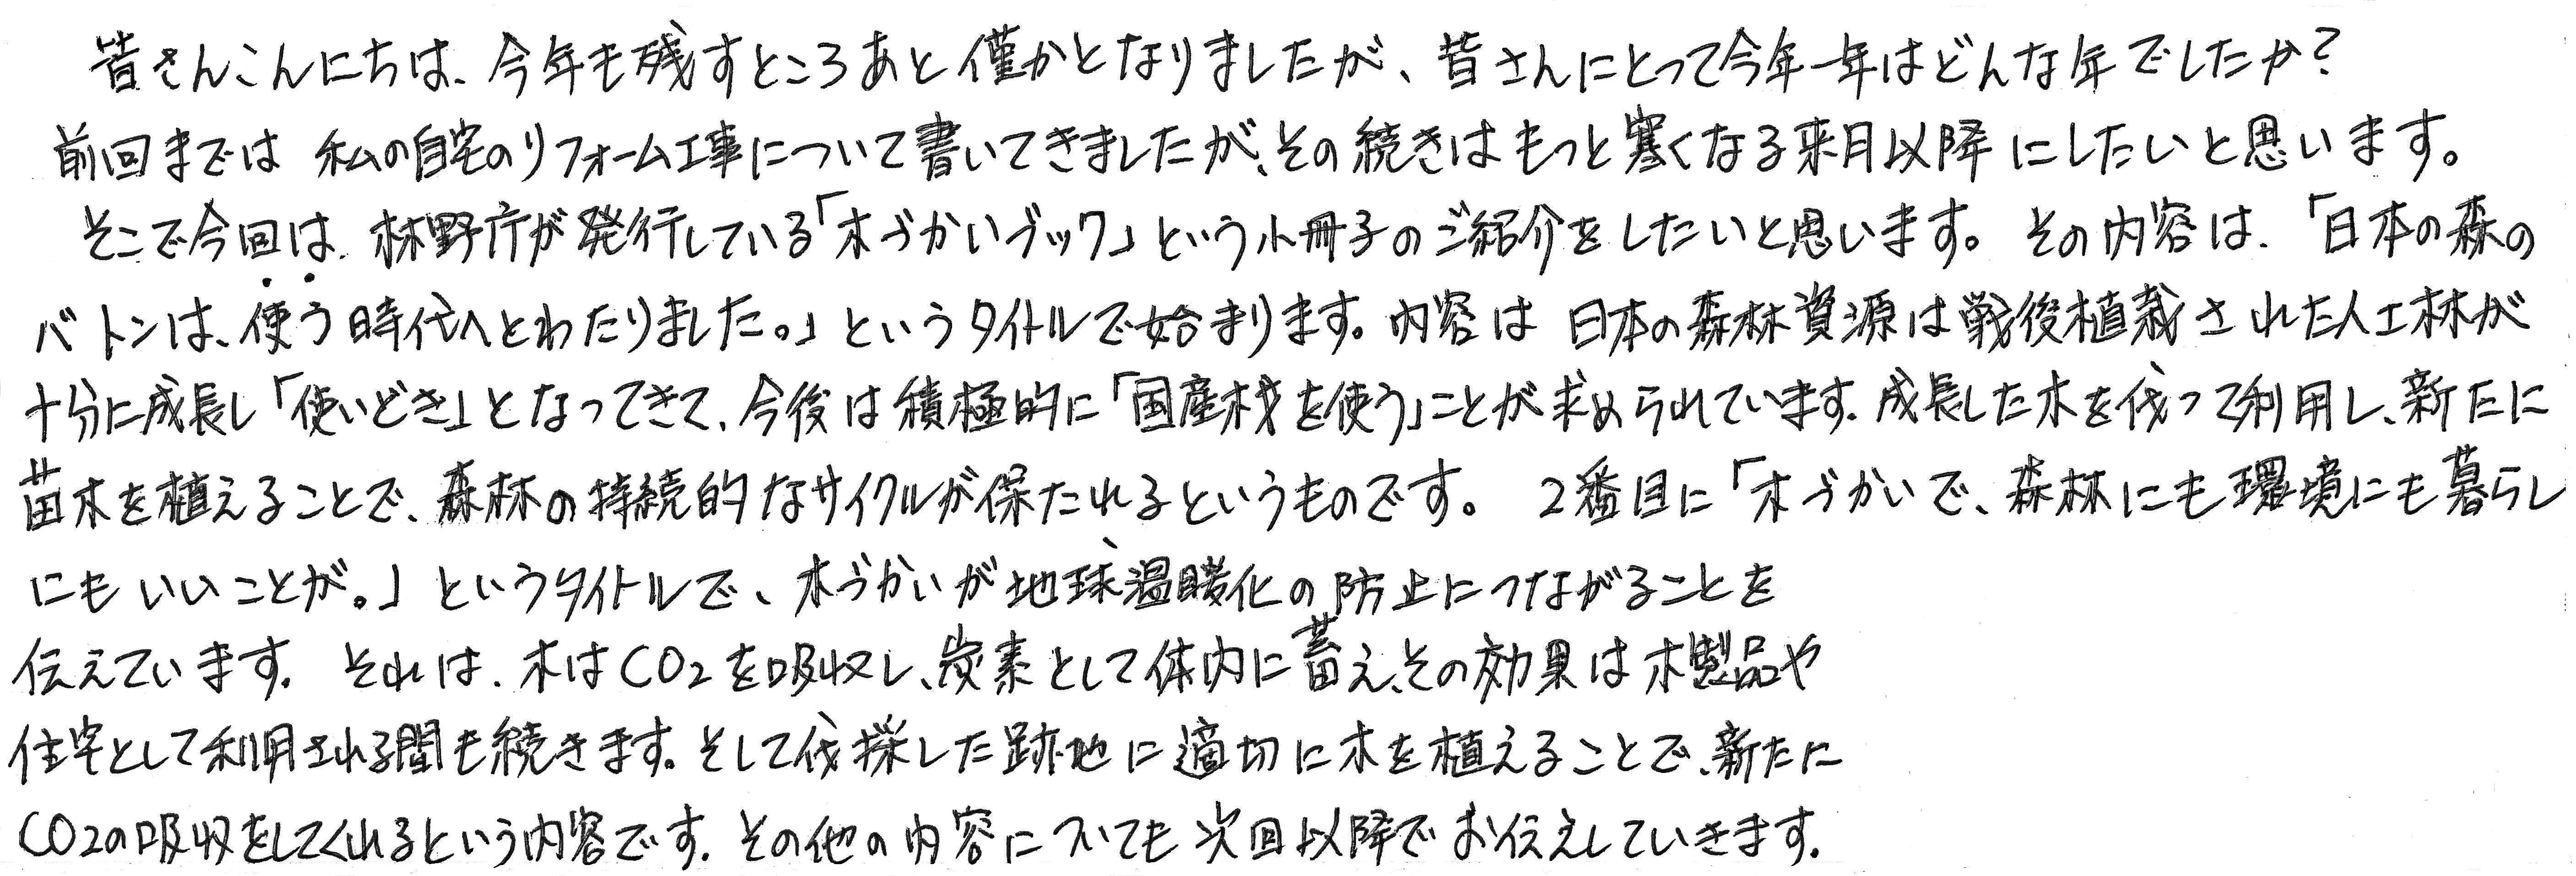 皆さんこんにちは、今年も残すところあと僅かとなりましたが、皆さんにとって今年一年はどんな年でしたか?
前回までは 私の自宅のリフォーム工事について書いてきましたが、その続きはもっと寒くなる来月以降にしたいと思います。
そこで今回は、林野庁が発行している「木づかいブック」という小冊子のご紹介をしたいと思います。その内容は、「日本の森の
バトンは、使う時代へとわたりました。」というタイトルで始まります。内容は 日本の森林資源は戦後植栽された人工林が
十分に成長し「使いどき」となってきて、今後は積極的に「国産材を使う」ことが求められています。成長した木を伐って利用し、新たに
苗木を植えることで、森林の持続的なサイクルが保たれるというものです。 2番目に「木づかいで、森林にも環境にも暮らし
にもいいことが。」というタイトルで、木づかいが地球温暖化の防止につながることを
伝えています。 それは、木はCO2を吸収し、炭素として体内に蓄え、その効果は木製品や
住宅として利用される間も続きます。そして伐採した跡地に適切に木を植えることで、新たに
CO2の吸収をしてくれるという内容です。その他の内容についても次回以降でお伝えしていきます。